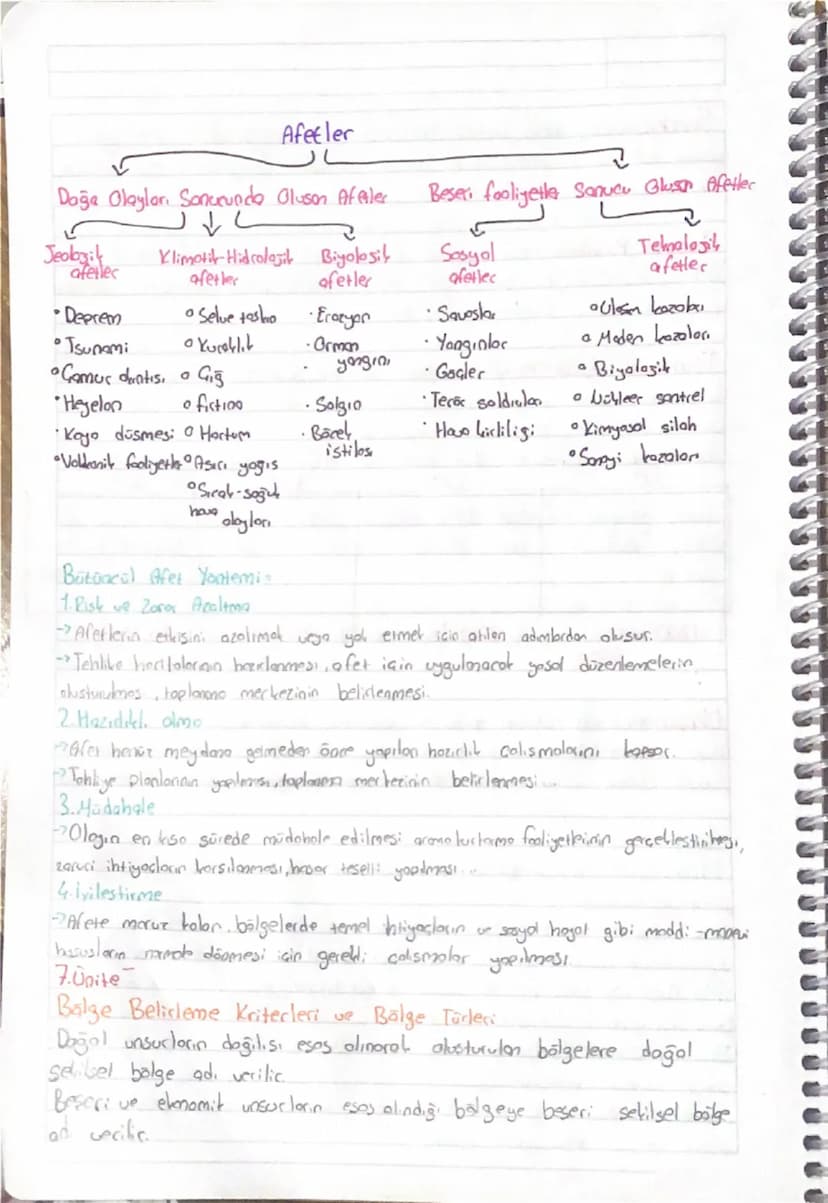 Afetler
Doğa Olayları Sonucunda Oluşan Afetler
Beşeri faaliyetler Sonucu Oluşan Afetler
Jeolojik afetler
Klimatik-Hidrolojik afetler
Biyolojik afetler
Sosyal afetler
Teknolojik afetler
• Deprem
• Tsunami
• Çamur akıntısı
• Heyelan
• Kaya düşmesi
• Volkanik faaliyetler
• Sel ve taşkın
• Kuraklık
• Çığ
• fırtına
• Hortum
• Aşırı yağış
• Sıcak-soğuk
hava olayları
• Erozyon
• Orman
yangını
• Salgın
• Böcek
istilası
• Savaşlar
• Yangınlar
• Göçler
• Terör saldırıları
• Hava kirliliği
• Ulaşım kazaları
• Maden kazaları
• Biyolojik
• Nükleer santrel
• Kimyasal silah
• Sanayi kazaları
Bütüncül Afet Yöntemi:
1. Risk ve Zarar Azaltma
→ Afetlerin etkisini azaltmak veya yok etmek için atılan adımlardan oluşur.
→ Tehlike haritalarının hazırlanması, afet için uygulanacak yasal düzenlemelerin
oluşturulması, toplanma merkezinin belirlenmesi.
2. Hazırlıklı olma
→ Afet henüz meydana gelmeden önce yapılan hazırlık çalışmalarını kapsar.
→ Tahliye planlarının yapılması, toplanma merkezinin belirlenmesi...
3. Müdahale
→ Olayın en kısa sürede müdahale edilmesi arama kurtarma faaliyetlerinin gerçekleştirilmesi,
zaruri ihtiyaçların karşılanması, hasar tespiti yapılması...
4. İyileştirme
→ Afete maruz kalan bölgelerde temel ihtiyaçların ve sosyal hayat gibi maddi-manevi
hususların normale dönmesi için gerekli çalışmalar yapılması.
7. Ünite
Bölge Belirleme Kriterleri ve Bölge Türleri
Doğal unsurların dağılışı esas alınarak oluşturulan bölgelere doğal
şekilsel bölge adı verilir.
Beşeri ve ekonomik unsurların esas alındığı bölgeye beşeri şekilsel bölge
adı verilir.